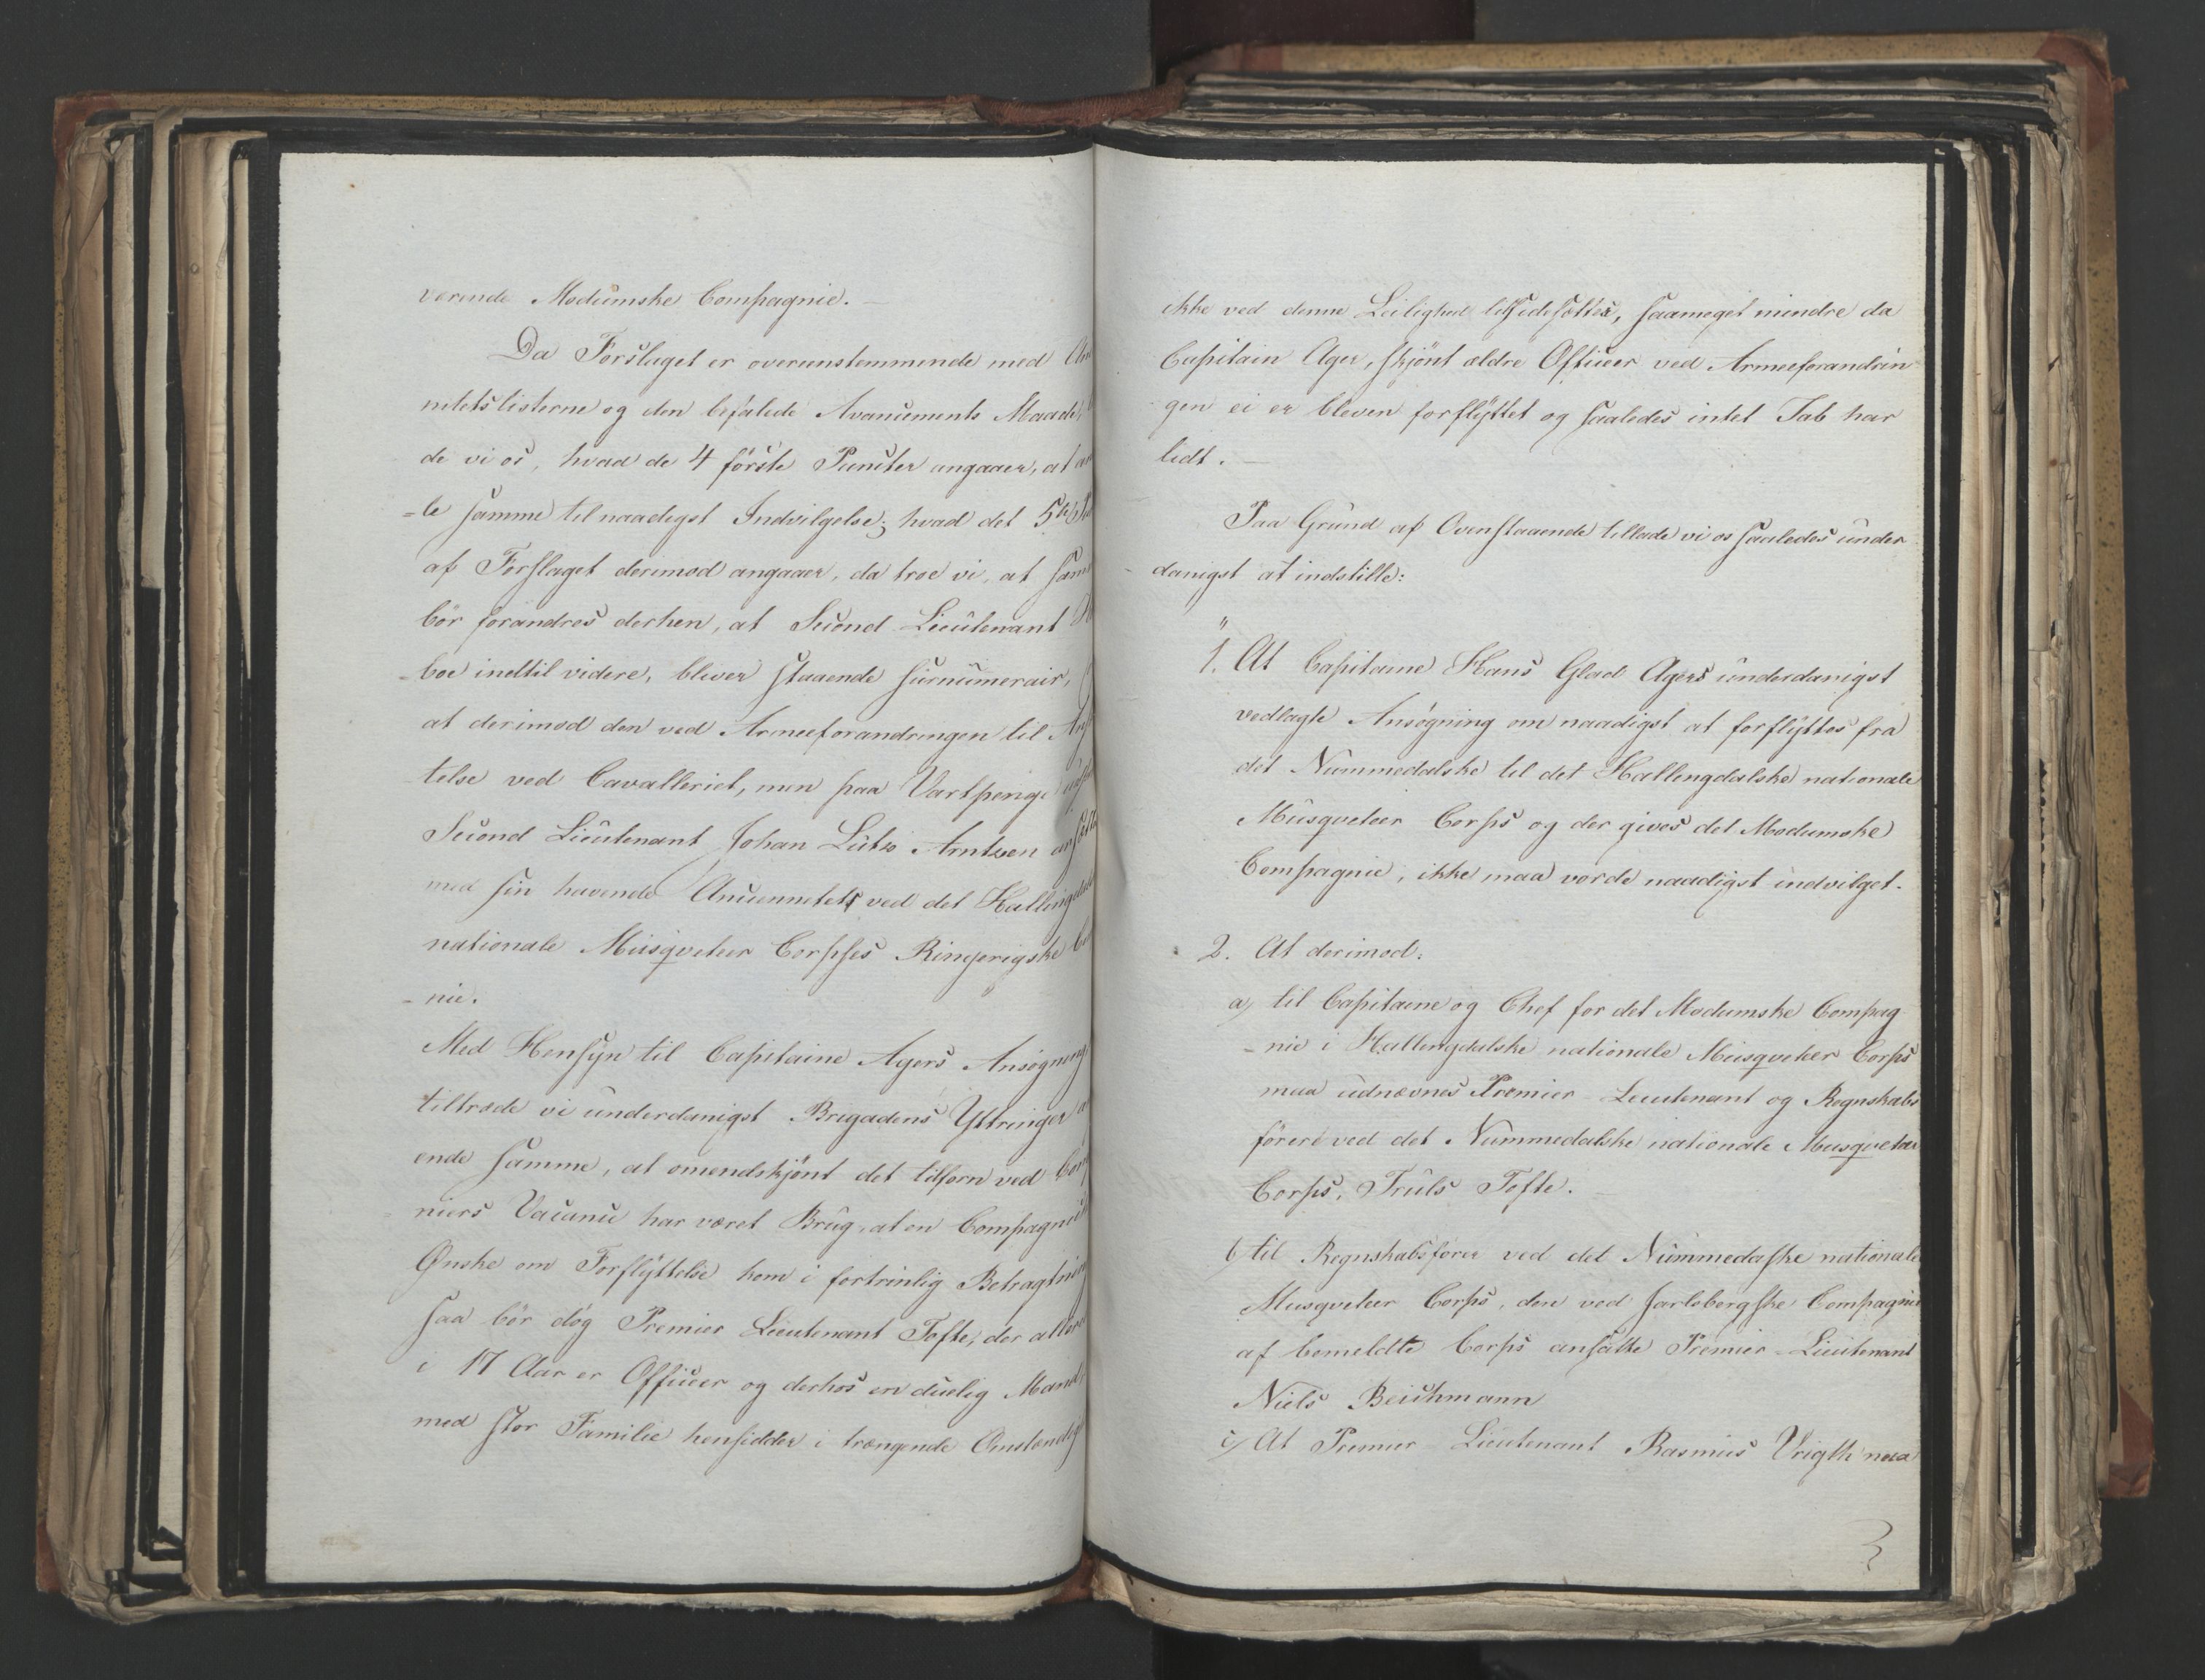 værende Modumske Compagnie. —
Da Forslaget er overeenstemmende med An
nitetslisterne og den befalede Avancements Maade,
de vi os, hvad de 4 første Puncter angaaer, at an
=le samme til naadigst Indvilgelse; hvad det 5te
af Forslaget derimod angaaer, da troe vi, at sam
bør forandres derhen, at Second-Lieutenant
=boe indtil videre, bliver staaende surnumerair,
at derimod den ved Armeeforandringen til An
telse ved Cavalleriet, men paa Vartpenge
Second Lieutenant Johan Lütso Arntzen ansættes
med sin havende Anciennetet ved det Hallingdals
nationale Musqveteer Corpses Ringerigske Co
- nie.
Med Hensyn til Capitaine Agers Ansøgning
tiltræde vi underdanigst Brigadens Yttringer
ende samme, at omendskjønt det tilforn ved Com
niers Vacance har været Brug, at en Compagnie
Ønske om Forflyttelse kom i fortrinlig Betragtning
saa bør dog Premier Lieutenant Tofte, der allere
i 17 Aar er Officeer og derhos en duelig Mand,
med stor Familie hensidder i trængende Omstændig
ikke ved denne Leilighed tilsidesættes, saameget mindre da
Capitain Ager, skjønt ældre Officeer ved Armeeforandrin
gen ei er bleven forflyttet og saaledes intet Tab har
lidt. —
Paa Grund af Ovenstaaende tillade vi os saaledes under
danigst at indstille:
1. At Capitaine Hans Glad Agers underdanigst
vedlagte Ansøgning om naadigst at forflyttes fra
det Nummedalske til det Hallingdalske nationale
Musqveteer Corps og der gives det Modumske
Compagnie, ikke maa vorde naadigst indvilget.
2. At derimod:
a, til Capitaine og Chef for det Modumske Compag
- nie i Hallingdalske nationale Musqveteer Corps
maa udnævnes Premier-Lieutenant og Regnskabs
fører ved det Nummedalske nationale Musqveteer
Corps, Truls Tofte. —
b, til Regnskabsfører ved det Nummedalske nationale
Musqveteer Corps, den ved Jarlsbergske Compagnie
af bemeldte Corps ansatte Premier-Lieutenant
Niels Beichmann
c, At Premier Lieutenant Rasmus Vrigth maa